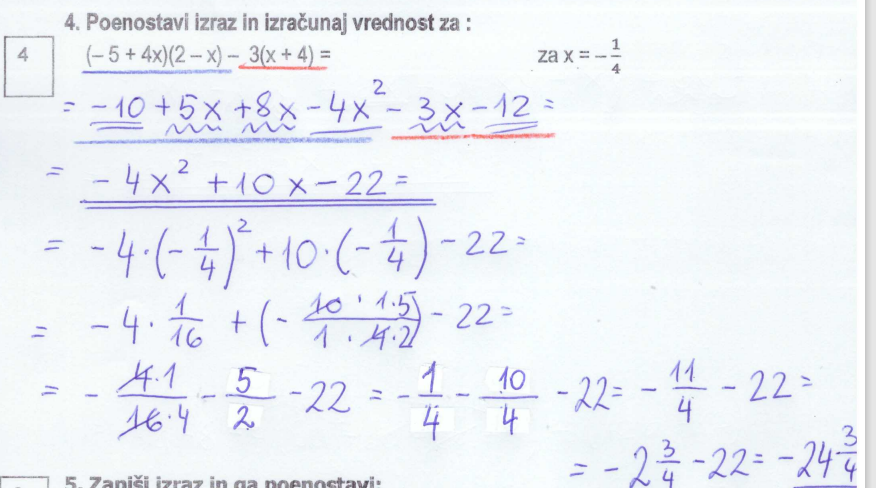 4. Poenostavi izraz in izračunaj vrednost za :
4 (– 5 + 4x)(2 – x) – 3(x + 4) = za x = – 1/4
= -10 + 5x + 8x - 4x² - 3x - 12 =
= - 4x² + 10x - 22 =
= - 4·(- 1/4)² + 10·(- 1/4) - 22 =
= - 4 · 1/16 + (- 10·1·5/1·4·2) - 22 =
= - 4·1/16·4 - 5/2 - 22 = - 1/4 - 10/4 - 22 = - 11/4 - 22 =
= - 2 3/4 - 22 = - 24 3/4
5. Zapiši izraz in ga poenostavi: